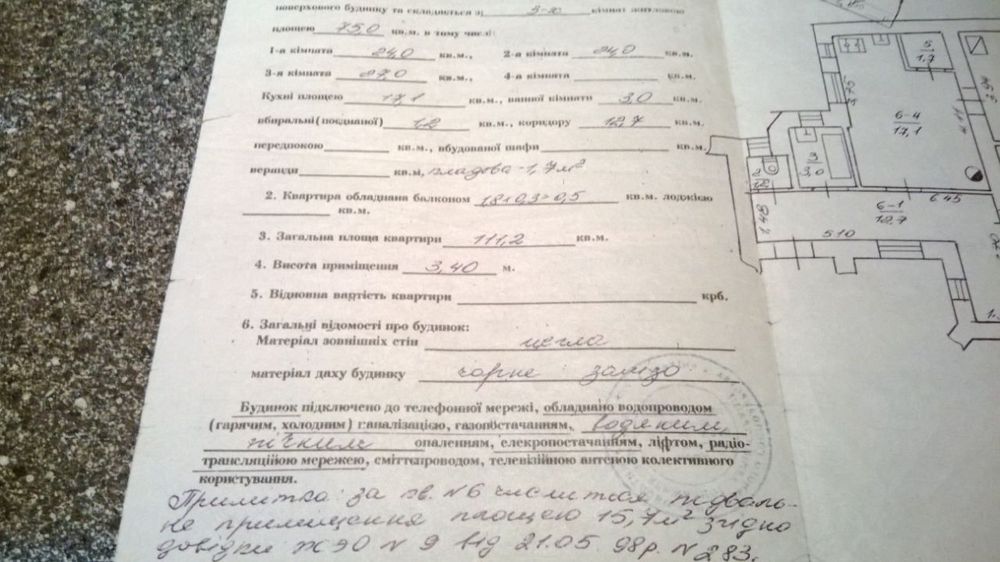 поверхового будинку та складається з 3-х кімнат житловою
площею 75,0 кв.м. в тому числі:
1-а кімната 24,0 кв.м., 2-а кімната 24,0 кв.м.
3-я кімната 27,0 кв.м., 4-а кімната кв.м.
Кухні площею 17,1 кв.м., ванної кімнати 3,0 кв.м.
вбиральні (поєднаної) 1,2 кв.м., коридору 12,7 кв.м.
передпокою кв.м., вбудованої шафи кв.м.
веранди кв.м, кладова - 1,7 м²
2. Квартира обладнана балконом 1,8×0,3=0,5 кв.м. лоджією
кв.м.
3. Загальна площа квартири 111,2 кв.м.
4. Висота приміщення 3,40 м.
5. Відновна вартість квартири крб.
6. Загальні відомості про будинок:
Матеріал зовнішніх стін цегла
матеріал даху будинку чорне залізо
Будинок підключено до телефонної мережі, обладнано водопроводом
(гарячим, холодним) каналізацією, газопостачанням, водяним
пічним опаленням, елекропостачанням, ліфтом, радіо-
трансляційною мережею, сміттєпроводом, телевізійною антеною колективного
користування.
Примітка: за кв. №6 числится підваль-
не приміщення площею 15,7 м² згідно
довідки ЖЭО № 9 від 21.05.98р. № 283.
5
1,7
6-4
17,1
4.11
3
3,0
2
1,2
6-1
12,7
6.45
1,48
5.10